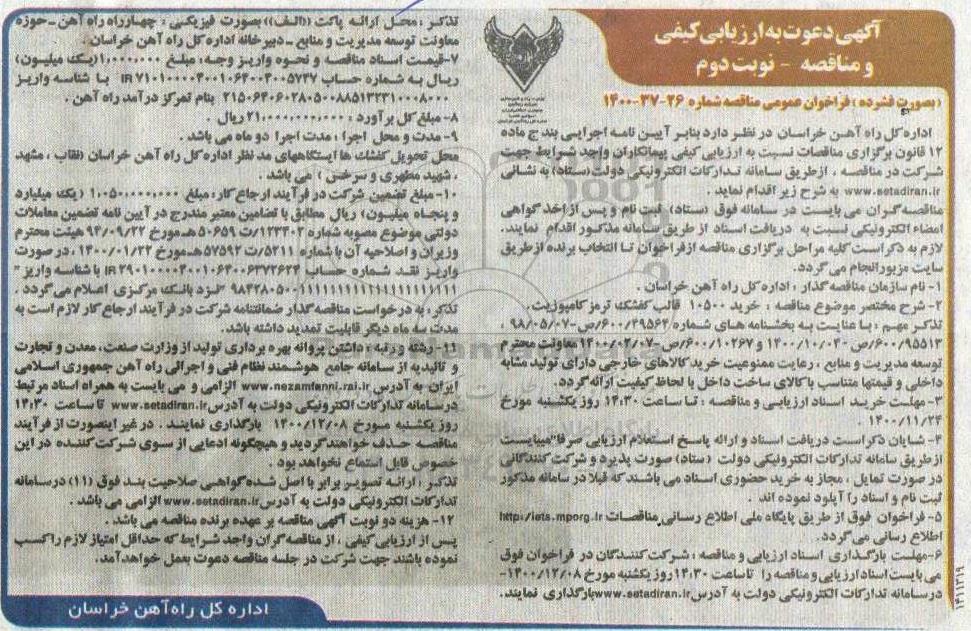 آگهی دعوت به ارزیابی کیفی
و مناقصه - نوبت دوم
(بصورت فشرده) فراخوان عمومی مناقصه شماره ۲۶-۳۷-۱۴۰۰
اداره کل راه آهن خراسان در نظر دارد بنابر آیین نامه اجرایی بند ج ماده
۱۲ قانون برگزاری مناقصات نسبت به ارزیابی کیفی پیمانکاران واجد شرایط جهت
شرکت در مناقصه ، ازطریق سامانه تدارکات الکترونیکی دولت (ستاد) به نشانی
www.setadiran.ir به شرح زیر اقدام نماید .
مناقصه گران می بایست در سامانه فوق (ستاد) ثبت نام و پس از اخذ گواهی
امضاء الکترونیکی نسبت به دریافت اسناد از طریق سامانه مذکور اقدام نمایند.
لازم به ذکر است کلیه مراحل برگزاری مناقصه از فراخوان تا انتخاب برنده ازطریق
سایت مزبور انجام می گردد.
۱- نام سازمان مناقصه گذار : اداره کل راه آهن خراسان .
۲- شرح مختصر موضوع مناقصه : خرید ۱۰۵۰۰ قالب کفشک ترمز کامپوزیت.
تذکر مهم : با عنایت به بخشنامه های شماره ۶۰۰/۴۹۵۶۴/ص-۹۸/۰۵/۰۷ ،
۶۰۰/۹۵۵۱۳/ص-۱۴۰۰/۱۰/۰۴ و ۶۰۰/۱۰۲۶۷/ص-۱۴۰۰/۰۲/۰۷ معاونت محترم
توسعه مدیریت و منابع ، رعایت ممنوعیت خرید کالاهای خارجی دارای تولید مشابه
داخلی و قیمتها متناسب با کالای ساخت داخل با لحاظ کیفیت ارائه گردد.
۳- مهلت خرید اسناد ارزیابی و مناقصه : تا ساعت ۱۴:۳۰ روز یکشنبه مورخ
۱۴۰۰/۱۱/۲۴ .
۴- شایان ذکر است دریافت اسناد و ارائه پاسخ استعلام ارزیابی صرفا میبایست
از طریق سامانه تدارکات الکترونیکی دولت (ستاد) صورت پذیرد و شرکت کنندگانی
در صورت تمایل ، مجاز به خرید حضوری اسناد می باشند که قبلا در سامانه مذکور
ثبت نام و اسناد را آپلود نموده اند .
۵- فراخوان فوق از طریق پایگاه ملی اطلاع رسانی مناقصات http://iets.mporg.ir
اطلاع رسانی می گردد.
۶- مهلت بارگذاری اسناد ارزیابی و مناقصه : شرکت کنندگان در فراخوان فوق
می بایست اسناد ارزیابی و مناقصه را تا ساعت ۱۴:۳۰ روز یکشنبه مورخ ۱۴۰۰/۱۲/۰۸-
در سامانه تدارکات الکترونیکی دولت به آدرس www.setadiran.ir بارگذاری نمایند.
تذکر : محل ارائه پاکت ((الف)) بصورت فیزیکی : چهارراه راه آهن - حوزه
معاونت توسعه مدیریت و منابع - دبیرخانه اداره کل راه آهن خراسان .
۷- قیمت اسناد مناقصه و نحوه واریز وجه: مبلغ ۱,۰۰۰,۰۰۰ (یک میلیون)
ریال به شماره حساب IR ۷۱۰۱۰۰۰۰۴۰۰۱۰۶۴۰۰۴۰۰۵۷۴۷ با شناسه واریز
۲۱۵۰۶۴۰۶۰۲۸۰۵۰۰۸۸۵۱۳۲۳۱۰۰۰۸۰۰۰ بنام تمرکز درآمد راه آهن .
۸- مبلغ کل برآورد : ۲۱,۰۰۰,۰۰۰,۰۰۰ ریال .
۹- مدت و محل اجرا : مدت اجرا دو ماه می باشد .
محل تحویل کفشک ها ایستگاههای مد نظر اداره کل راه آهن خراسان (نقاب ، مشهد
، شهید مطهری و سرخس ) می باشد .
۱۰- مبلغ تضمین شرکت در فرآیند ارجاع کار: مبلغ ۱,۰۵۰,۰۰۰,۰۰۰ (یک میلیارد
و پنجاه میلیون) ریال مطابق با تضامین معتبر مندرج در آیین نامه تضمین معاملات
دولتی موضوع مصوبه شماره ۱۲۳۴۰۲/ت ۵۰۶۵۹ هـ مورخ ۹۴/۰۹/۲۲ هیئت محترم
وزیران و اصلاحیه آن با شماره ۵۲۱۱/ت ۵۷۵۹۲ هـ مورخ ۱۴۰۰/۰۱/۲۲ ، در صورت
واریز نقد شماره حساب IR ۲۹۰۱۰۰۰۰۴۰۰۱۰۶۴۰۰۶۳۷۲۶۲۳ با شناسه واریز "
۹۸۴۲۸۰۵۰۰۱۱۱۱۱۱۱۱۱۱۱۱۱۱۱۱۱۱۱۱۱ " نزد بانک مرکزی اعلام می گردد .
تذکر: به درخواست مناقصه گذار ضمانتنامه شرکت در فرآیند ارجاع کار لازم است به
مدت سه ماه دیگر قابلیت تمدید داشته باشد.
۱۱- رشته و رتبه : داشتن پروانه بهره برداری تولید از وزارت صنعت، معدن و تجارت
و تائیدیه از سامانه جامع هوشمند نظام فنی و اجرائی راه آهن جمهوری اسلامی
ایران به آدرس www.nezamfanni.rai.ir الزامی و می بایست به همراه اسناد مرتبط
در سامانه تدارکات الکترونیکی دولت به آدرس www.setadiran.ir تا ساعت ۱۴:۳۰
روز یکشنبه مورخ ۱۴۰۰/۱۲/۰۸ بارگذاری نمایند . در غیر اینصورت از فرآیند
مناقصه حذف خواهند گردید و هیچگونه ادعایی از سوی شرکت کننده در این
خصوص قابل استماع نخواهد بود .
تذکر : ارائه تصویر برابر با اصل شده گواهی صلاحیت بند فوق (۱۱) در سامانه
تدارکات الکترونیکی دولت به آدرس www.setadiran.ir الزامی می باشد .
۱۲- هزینه دو نوبت آگهی مناقصه بر عهده برنده مناقصه می باشد .
پس از ارزیابی کیفی ، از مناقصه گران واجد شرایط که حداقل امتیاز لازم را کسب
نموده باشند جهت شرکت در جلسه مناقصه دعوت بعمل خواهد آمد.
اداره کل راه آهن خراسان
۱۴۱۱۳۱۹